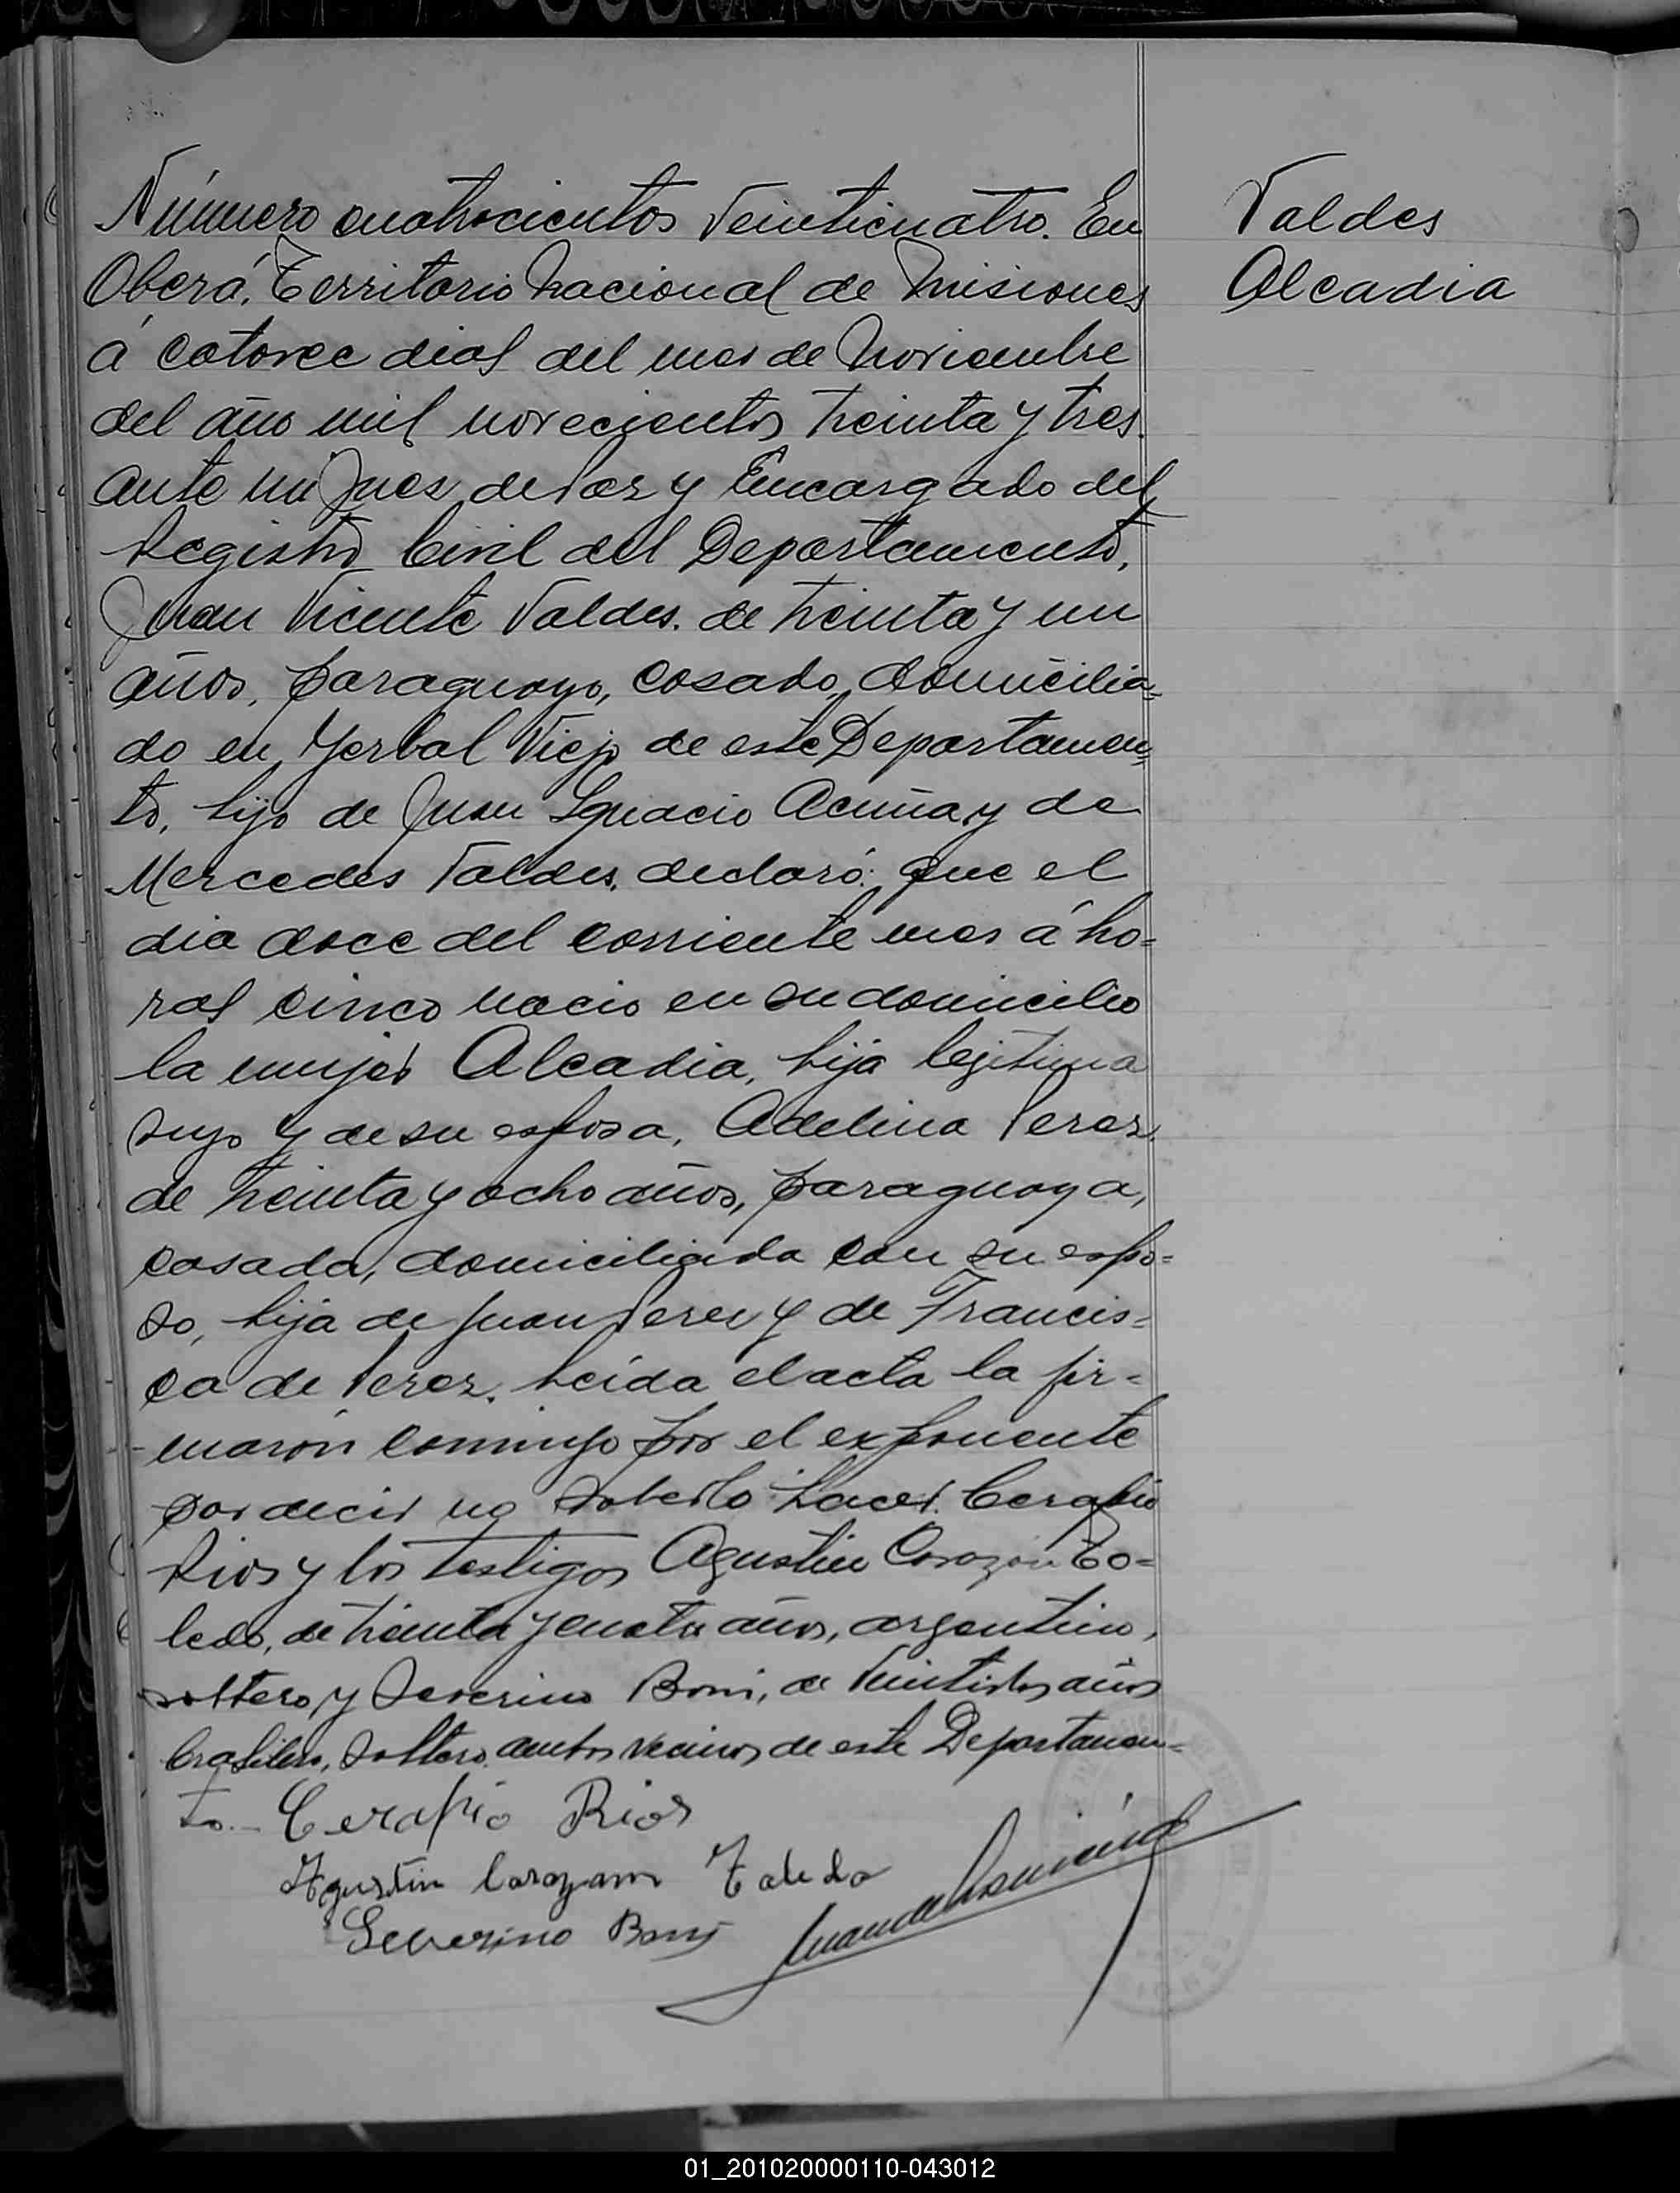 Número cuatrocientos Veinticuatro. En
Oberá, Territorio Nacional de Misiones
á catorce dias del mes de Noviembre
del año mil novecientos treinta y tres.
ante mi Juez de Paz y Encargado del
Registro Civil del Departamento,
Juan Vicente Valdes. de treinta y un
años, paraguayo, casado, domicilia=
do en Yerbal Viejo de este Departamen=
to, hijo de Juan Ignacio Acuña y de
Mercedes Valdes, declaró: que el
dia doce del corriente mes á ho=
ras cinco nacio en su domicilio
la mujer Alcadia, hija legitima
suyo y de su esposa, Adelina Perez,
de treinta y ocho años, paraguaya,
casada, domiciliada con su espo=
so, hija de Juan Perez y de Francis=
ca de Perez. Leída el acta la fir=
maron conmigo por el exponente
por decir no saberlo hacer. Cerafio
Rios y los testigos Agustin Corazon To=
ledo, de treinta y cuatro años, argentino,
soltero y Severino Boni, de Veintidos años
brasilero, soltero, ambos vecinos de este Departamen=
to.- Cerafio Rios
Agustin Corazom Toledo
Severino Boni
Valdes
Alcadia
01_201020000110-043012